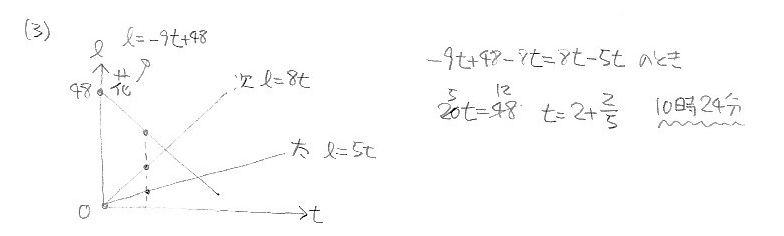 (3)
l l=-9t+48
花
48
次 l=8t
太 l=5t
0 t
-9t+48-8t=8t-5t のとき
5 12
20t=48 t=2+2/5 10時24分